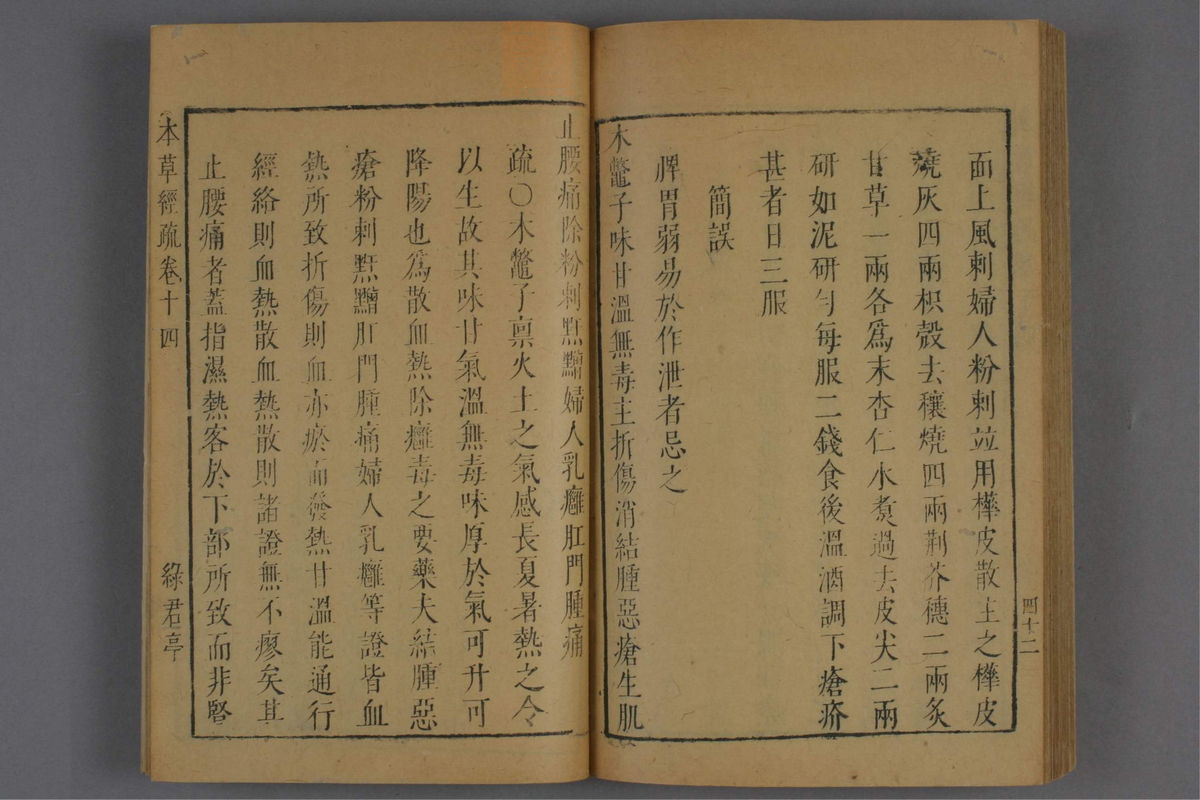 面上風刺婦人粉刺竝用樺皮散主之樺皮
燒灰四兩枳殼去穰燒四兩荆芥穗二兩炙
甘草一兩各爲末杏仁水煮過去皮尖二兩
研如泥研勻每服二錢食後溫酒調下瘡疥
甚者日三服
簡誤
脾胃弱易於作泄者忌之
木鼈子味甘溫無毒主折傷消結腫惡瘡生肌
四十二
止腰痛除粉刺䵟䵳婦人乳癰肛門腫痛
疏〇木鼈子禀火土之氣感長夏暑熱之令
以生故其味甘氣溫無毒味厚於氣可升可
降陽也爲散血熱除癰毒之要藥夫結腫惡
瘡粉刺䵟䵳肛門腫痛婦人乳癰等證皆血
熱所致折傷則血亦瘀而發熱甘溫能通行
經絡則血熱散血熱散則諸證無不瘳矣其
止腰痛者蓋指濕熱客於下部所致而非腎
本草經疏卷十四
綠君亭